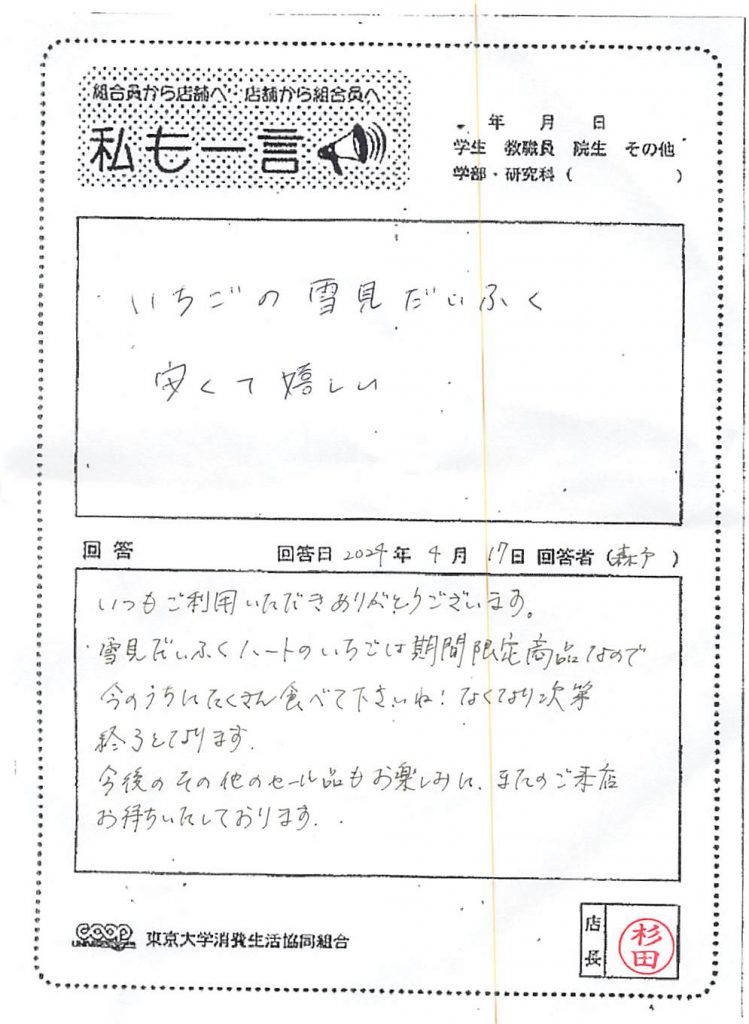 組合員から店舗へ 店舗から組合員へ
私も一言
年 月 日
学生 教職員 院生 その他
学部・研究科( )
いちごの雪見だいふく
安くて嬉しい
回答 回答日 2024年 4月 17日 回答者(森戸)
いつもご利用いただきありがとうございます。
雪見だいふくハートのいちごは期間限定商品なので
今のうちにたくさん食べて下さいね!なくなり次第
終了となります.
今後のその他のセール品もお楽しみに、またのご来店
お待ちいたしております.
coop
UNIVERSITY
東京大学消費生活協同組合
店長
杉田